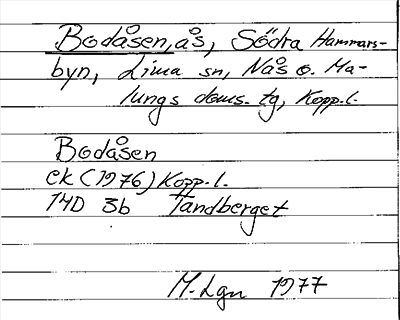 Bodåsen, ås, Södra Hammars-
byn, Lima sn, Nås o. Ma-
lungs doms. tg, Kopp.l.
Bodåsen
ek (1976) Kopp.l.
14D 3b Tandberget
M. Lgn 1977